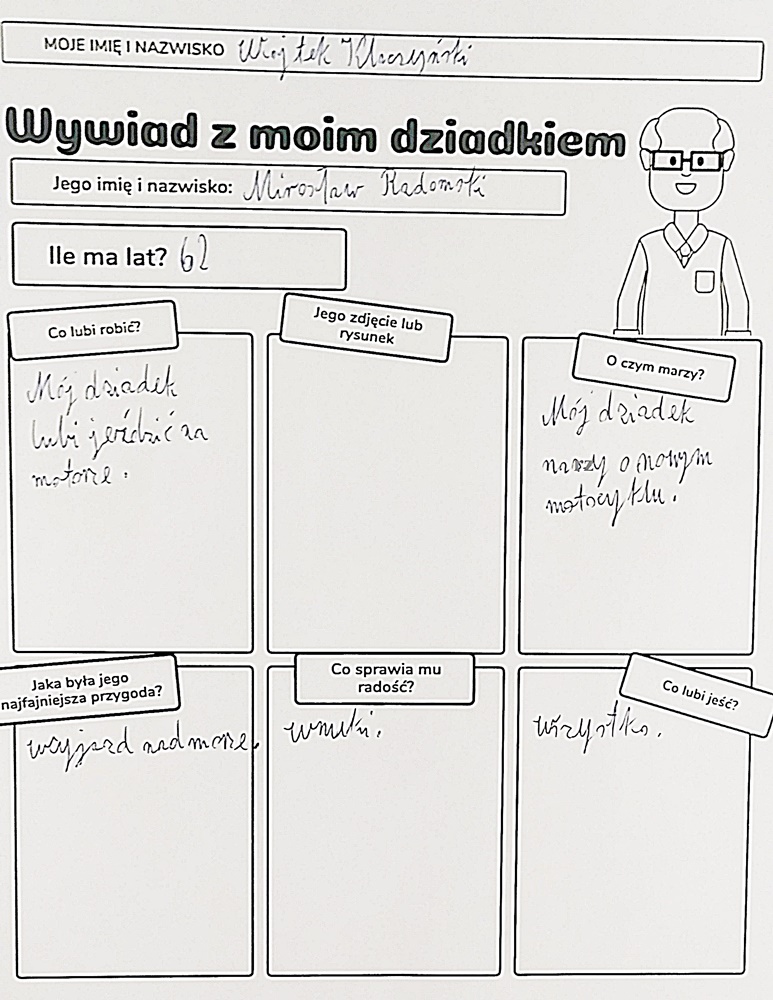 MOJE IMIĘ I NAZWISKO Wojtek
Wywiad z moim dziadkiem
Jego imię i nazwisko: Mirosław Radomski
Ile ma lat? 62
Co lubi robić?
Mój dziadek
lubi jeździć na
motorze.
Jego zdjęcie lub
rysunek
O czym marzy?
Mój dziadek
marzy o nowym
motocyklu.
Jaka była jego
najfajniejsza przygoda?
wyjazd nad morze.
Co sprawia mu
radość?
wnuki.
Co lubi jeść?
wszystko.